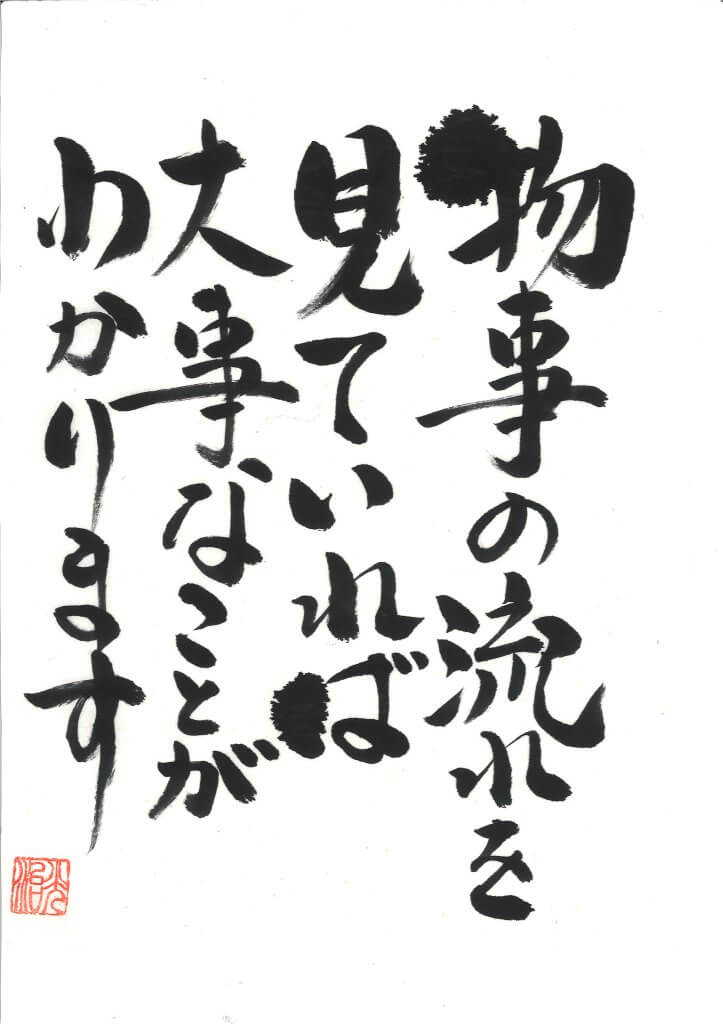 物事の流れを
見ていれば
大事なことが
わかります